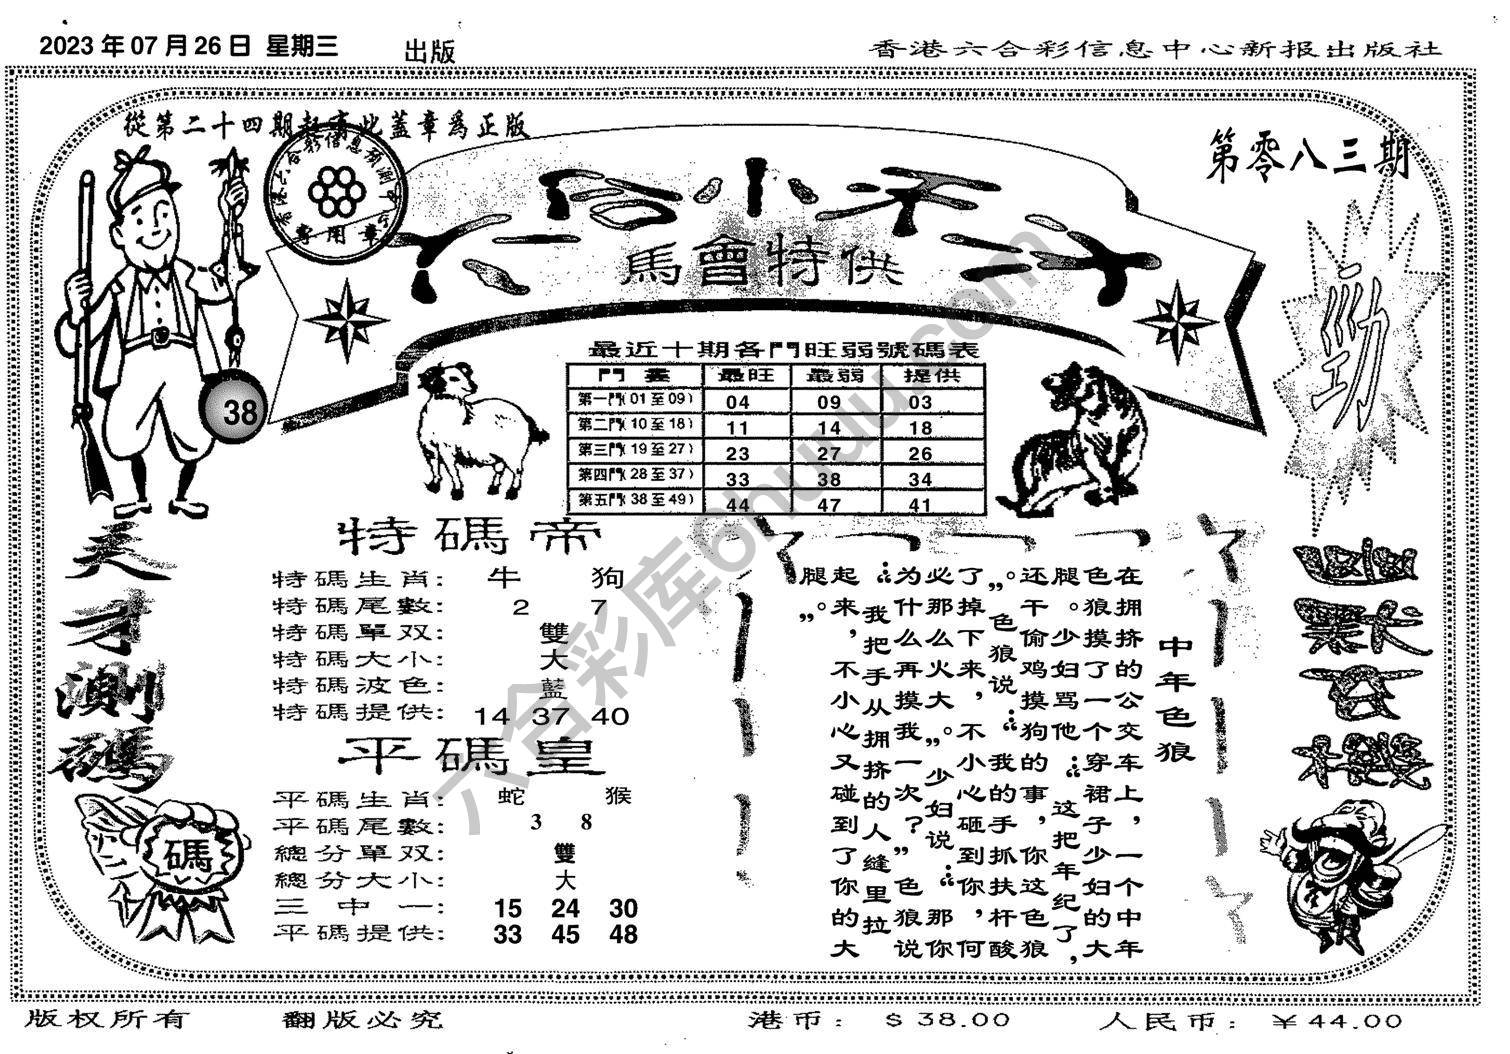 2023年07月26日 星期三 出版
香港六合彩信息中心新报出版社
從第二十四期起有此蓋章爲正版
第零八三期
香港六合彩信息預測中心
專用章
六合小天才
馬會特供
勁
38
最近十期各門旺弱號碼表
門 最旺 最弱 提供
第一門(01至09) 04 09 03
第二門(10至18) 11 14 18
第三門(19至27) 23 27 26
第四門(28至37) 33 38 34
第五門(38至49) 44 47 41
天才測碼
碼
特碼帝
特碼生肖: 牛 狗
特碼尾數: 2 7
特碼單双: 雙
特碼大小: 大
特碼波色: 藍
特碼提供: 14 37 40
平碼皇
平碼生肖: 蛇 猴
平碼尾數: 3 8
總分單双: 雙
總分大小: 大
三中一: 15 24 30
平碼提供: 33 45 48
中年色狼
在拥挤的公交车上，一个中年
色狼摸了一个穿裙子少妇的大
腿。少妇骂他:“这把年纪了，
还干偷鸡摸狗的事，你这色狼
。”色狼说:“我的手抓扶杆酸
了掉下来，不小心砸到你，何
必那么火大。”少妇说:“那你
为什么再摸我一次？”色狼说
:“我把手从拥挤的人缝里拉
起来，不小心又碰到了你的大
腿。”
六合彩库6huuu.com
版权所有 翻版必究 港币: $38.00 人民币: ¥44.00